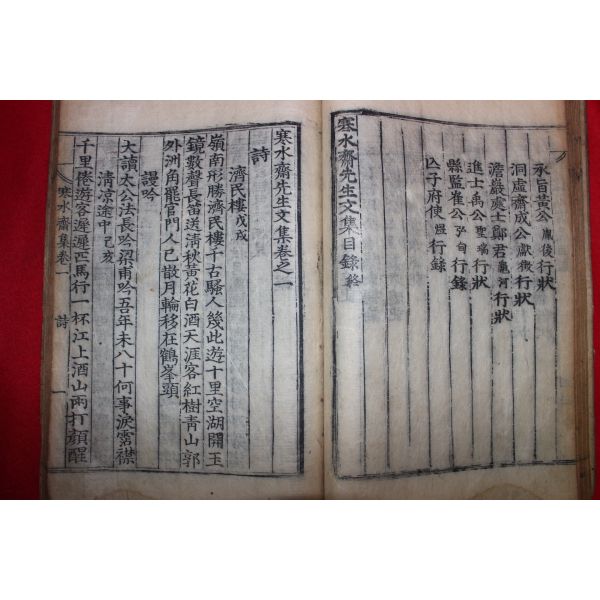 承旨黃公胤後行狀
洞虛齋成公獻徵行狀
澹巖處士鄭君龜河行狀
進士禹公聖瑞行狀
縣監崔公자自行錄
亡子府使煜行錄
寒水齋先生文集目錄終
寒水齋先生文集卷之一
詩
濟民樓戊戌
嶺南形勝濟民樓千古騷人幾此遊十里空湖開玉
鏡數聲長笛送淸秋黃花白酒天涯客紅樹靑山郭
外洲角罷官門人已散月輪移在鶴峯頭
謾吟
大讀太公法長吟梁甫吟吾年未八十何事淚霑襟
淸凉途中己亥
千里倦遊客遲遲匹馬行一杯江上酒山雨打顔醒
寒水齋集卷一 詩 一